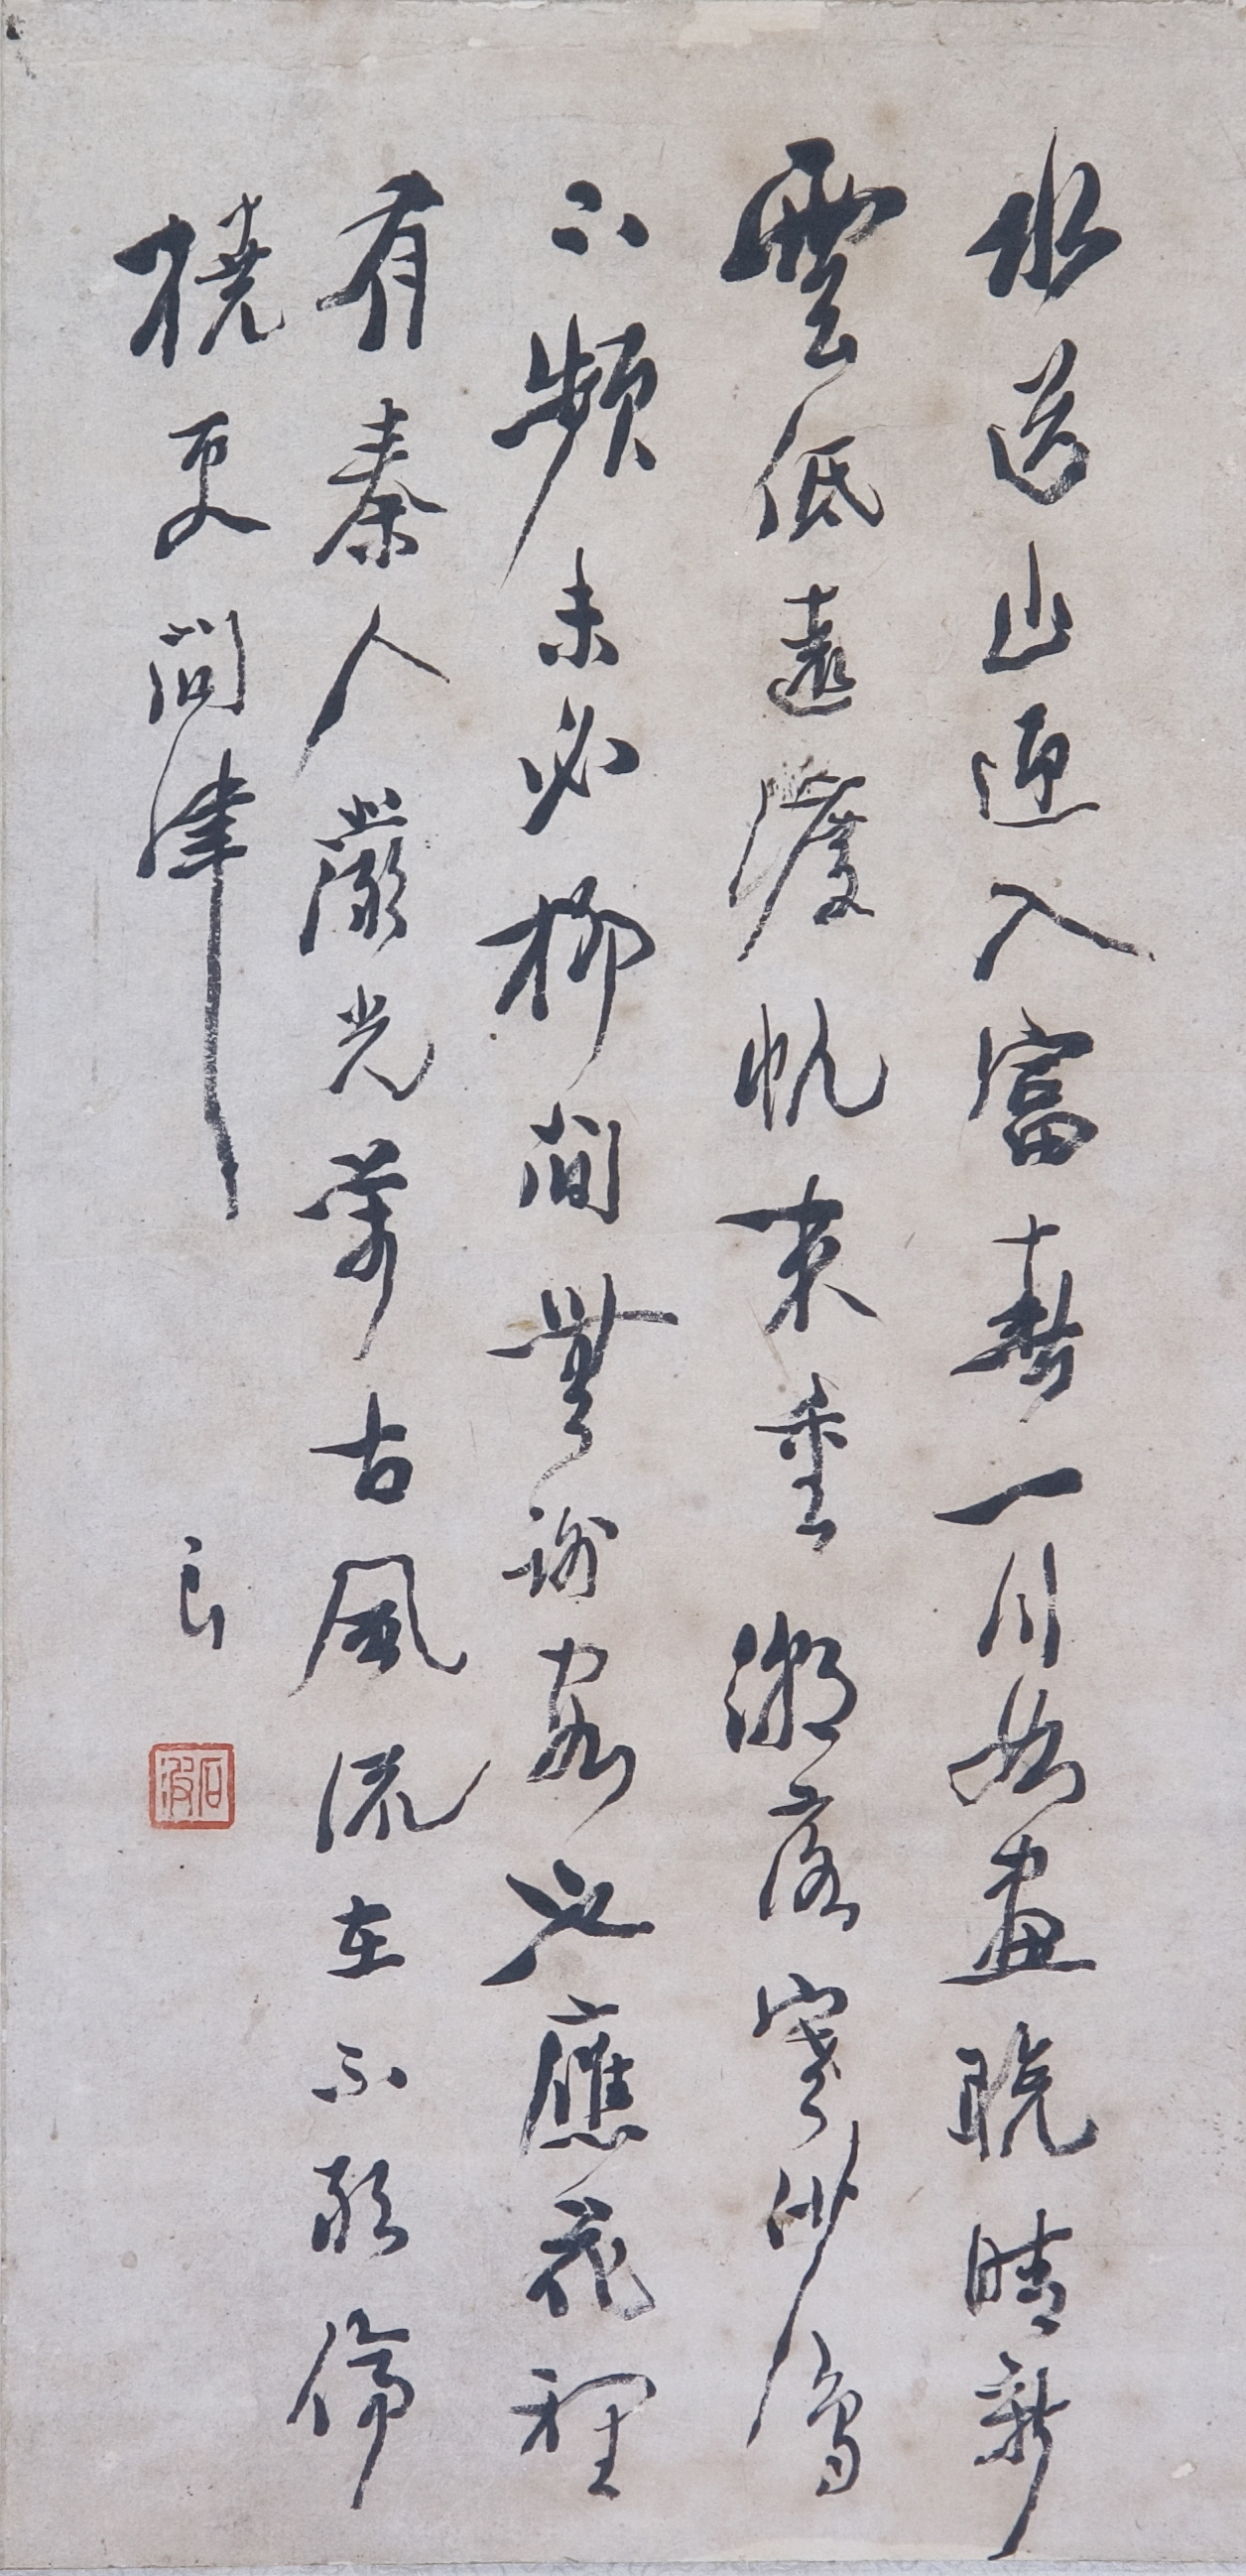 水送山迎入富春一川如畫晚晴新
雲低遠渡帆來重潮落寒沙鳥
下頻未必柳間無謝客也應花裡
有秦人嚴光萬古風流在不敢停
橈更問津
良